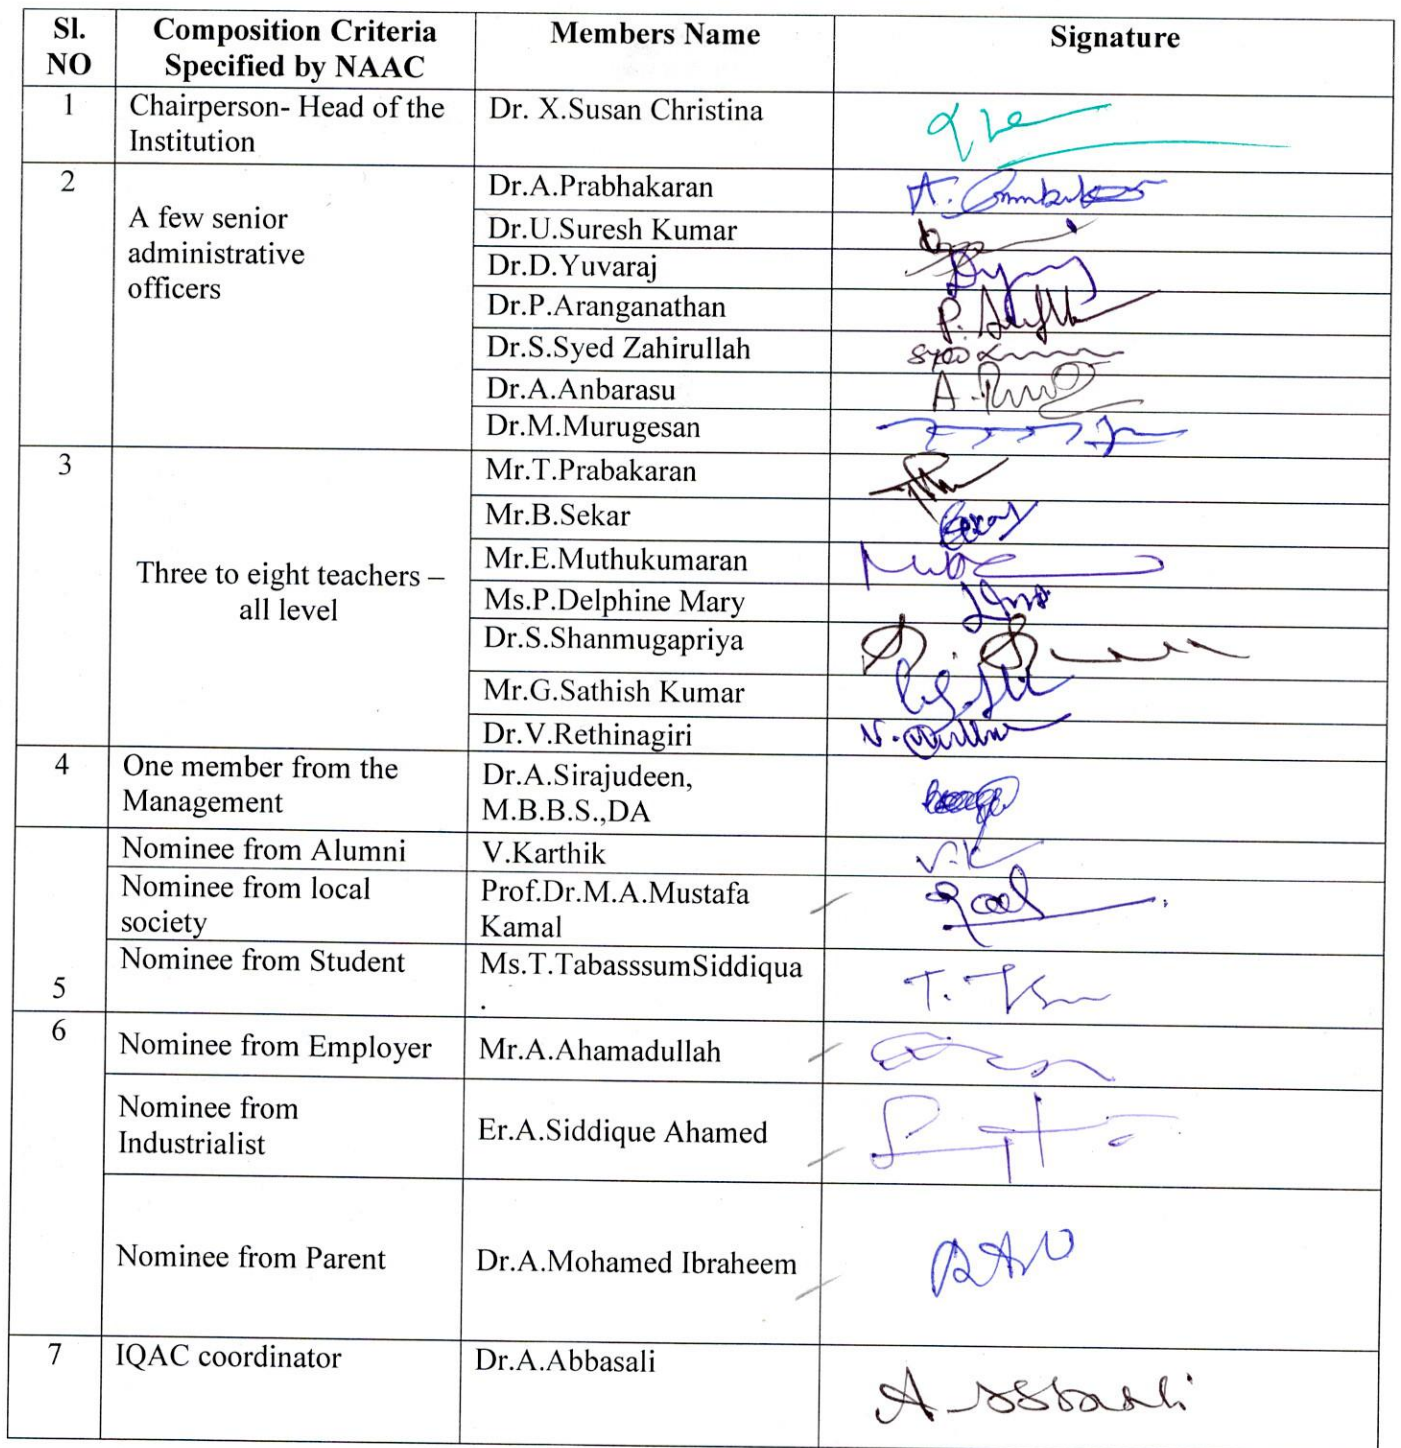 Sl. NO Composition Criteria Specified by NAAC Members Name Signature
1 Chairperson- Head of the Institution Dr. X.Susan Christina
2 A few senior administrative officers Dr.A.Prabhakaran
Dr.U.Suresh Kumar
Dr.D.Yuvaraj
Dr.P.Aranganathan
Dr.S.Syed Zahirullah
Dr.A.Anbarasu
Dr.M.Murugesan
3 Three to eight teachers – all level Mr.T.Prabakaran
Mr.B.Sekar
Mr.E.Muthukumaran
Ms.P.Delphine Mary
Dr.S.Shanmugapriya
Mr.G.Sathish Kumar
Dr.V.Rethinagiri
4 One member from the Management Dr.A.Sirajudeen, M.B.B.S.,DA
Nominee from Alumni V.Karthik
Nominee from local society Prof.Dr.M.A.Mustafa Kamal
5 Nominee from Student Ms.T.TabasssumSiddiqua .
6 Nominee from Employer Mr.A.Ahamadullah
Nominee from Industrialist Er.A.Siddique Ahamed
Nominee from Parent Dr.A.Mohamed Ibraheem
7 IQAC coordinator Dr.A.Abbasali